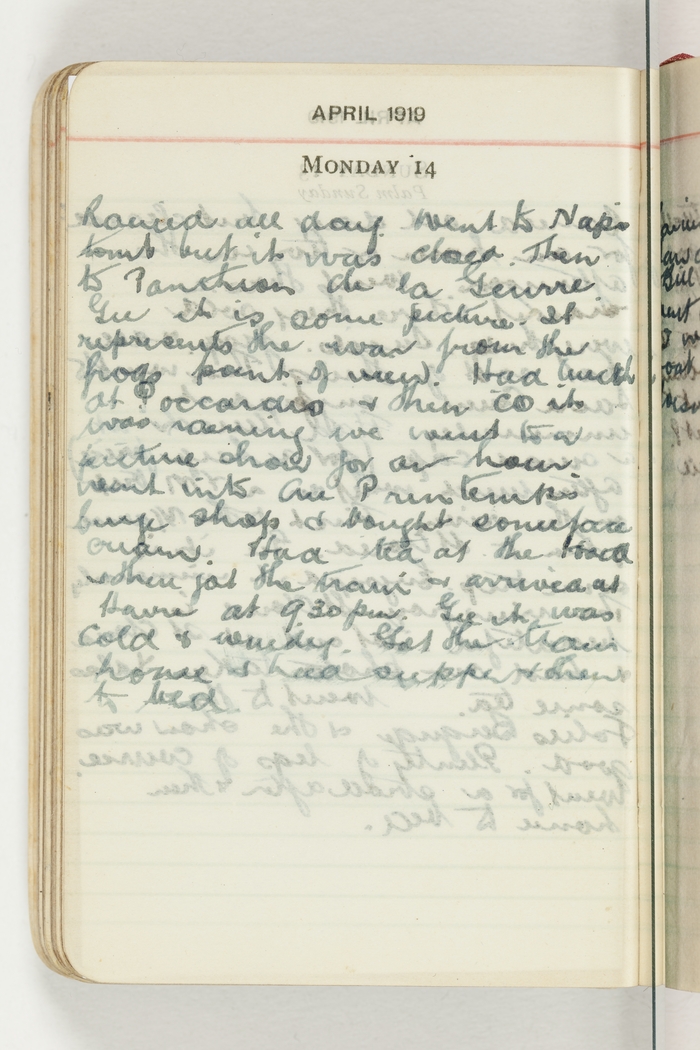 APRIL 1919
MONDAY 14
Rained all day. Went to Nap's
tomb but it was closed. Then
to Pantheon de la Geurre
Gee it is some picture. It
represents the war from the
frogs point of view. Had lunch
at Poccardis & then as it
was raining we went to a
picture show for an hour.
Went into Au Printemps
huge shop & bought some face
cream. Had tea at the
then got the train & arrived at
Havre at 930 pm. Gee it was
Cold & windy. Got the tram
home & had supper & then
to bed.